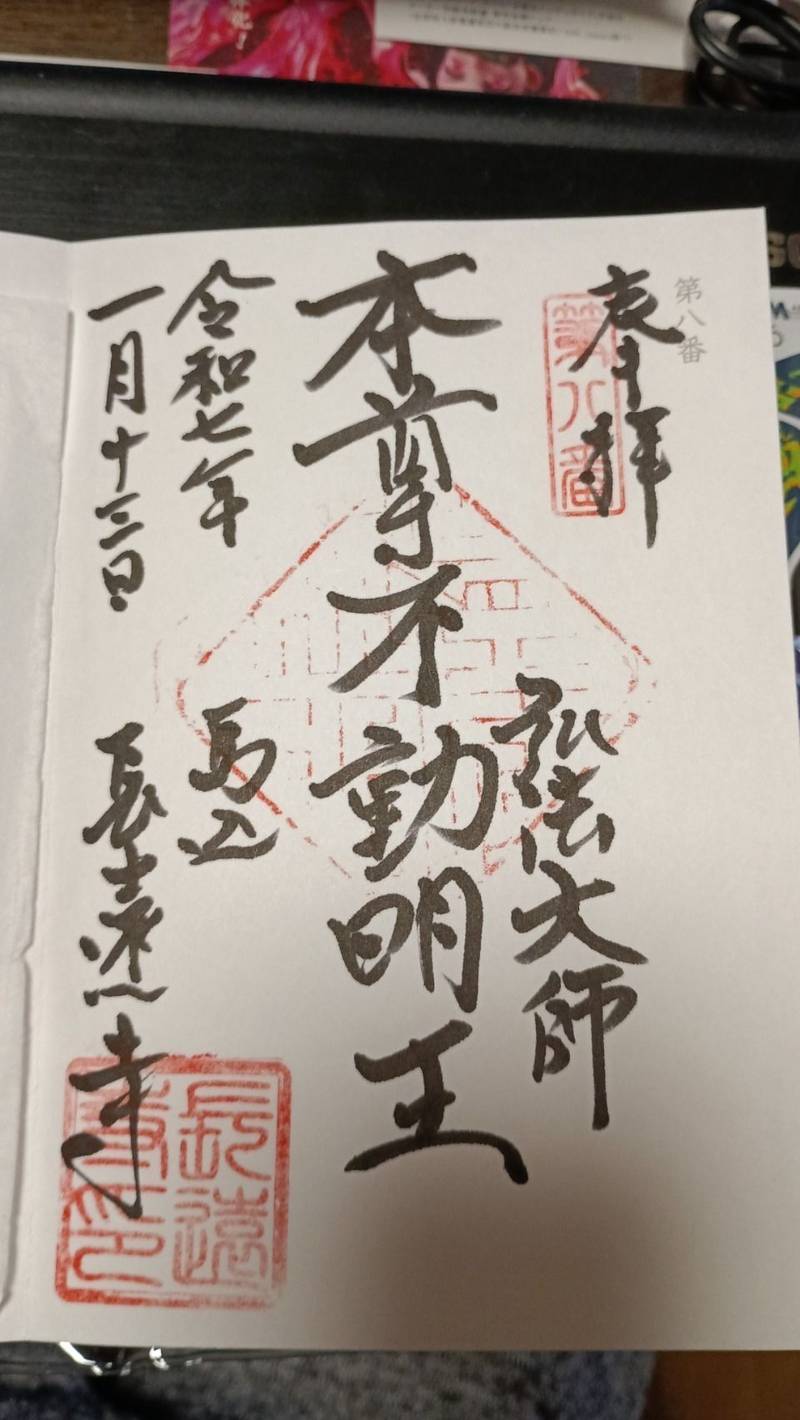 第八番
奉拝
第八番
弘法大師
本尊不動明王
令和七年
馬込
一月十三日
長遠寺
長遠
寺印